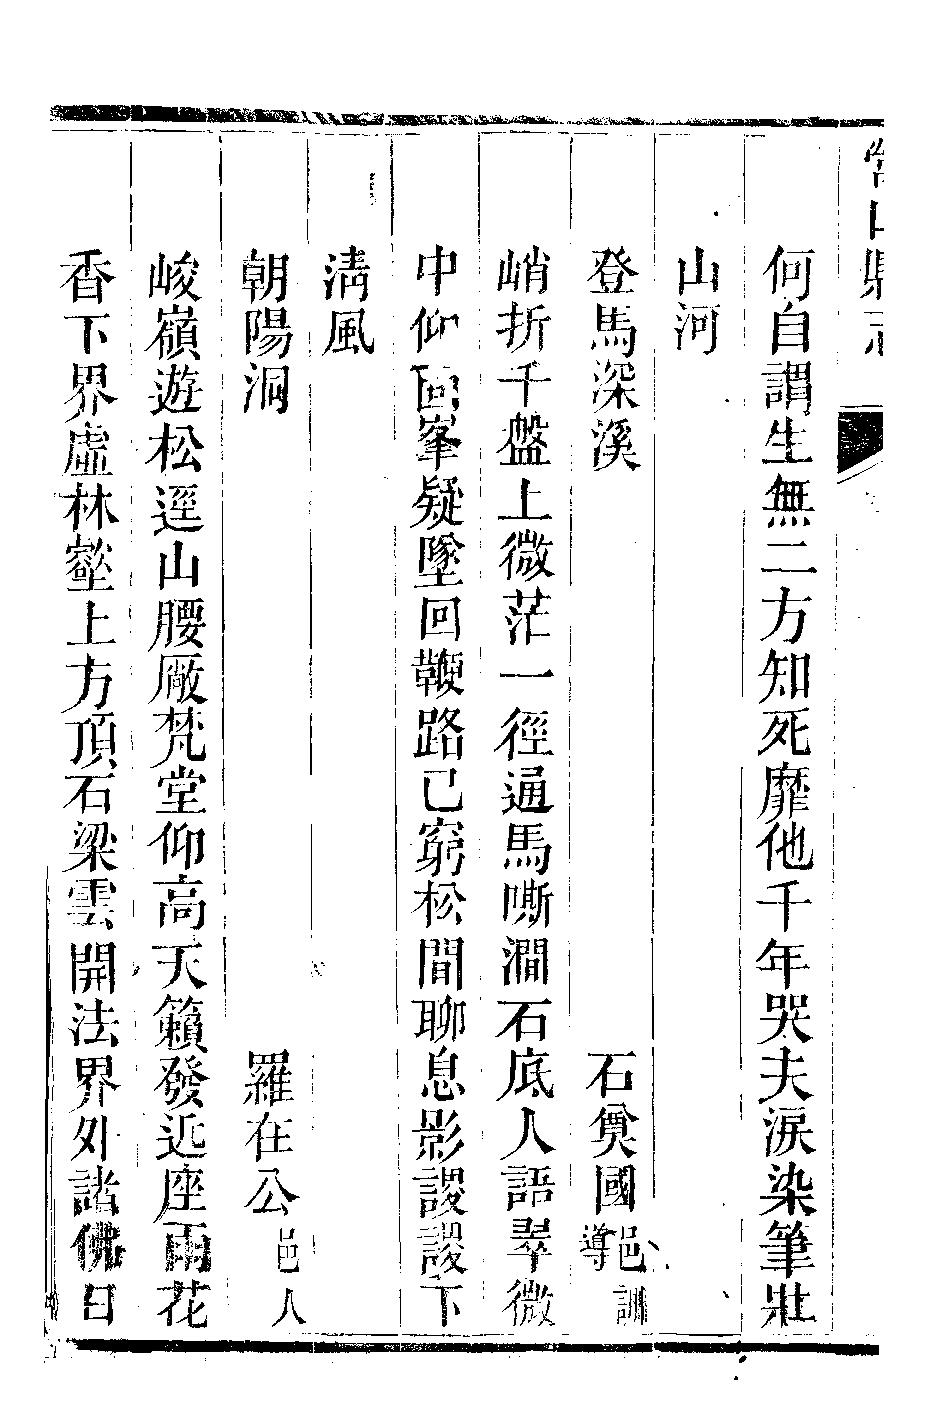 何自謂生無二方知死靡他千年哭夫淚染筆壯
山河
登馬深溪
石奠國邑訓導
峭折千盤上微茫一徑通馬嘶澗石底人語翠微
中仰面峯疑墜回鞭路已窮松間聊息影謖謖下
清風
朝陽洞
羅在公邑人
峻嶺遊松逕山腰厰梵堂仰高天籟發近座雨花
香下界虛林壑上方頂石梁雲開法界外諸佛日